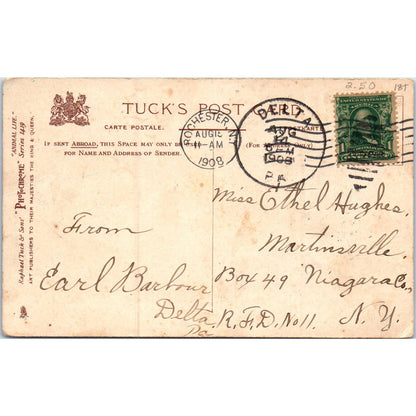 2.50 187
TUCK'S POST CARD
CARTE POSTALE.
IF SENT ABROAD, THIS SPACE MAY ONLY BE
FOR NAME AND ADDRESS OF SENDER.
ROCHESTER, N.Y.
AUG 15
11-AM
1908
DELTA
AUG
14
PM
1908
PA
UNITED STATES
Raphael Tuck & Sons' "PHOTOCHROME" Series 4419
"ANIMAL LIFE."
ART PUBLISHERS TO THEIR MAJESTIES THE KING & QUEEN.
From
Earl Barbour
Delta
Pa
Miss Ethel Hughes,
Martinsville.
Box 49 Niagara Co,
R.F.D. No 11. N.Y.